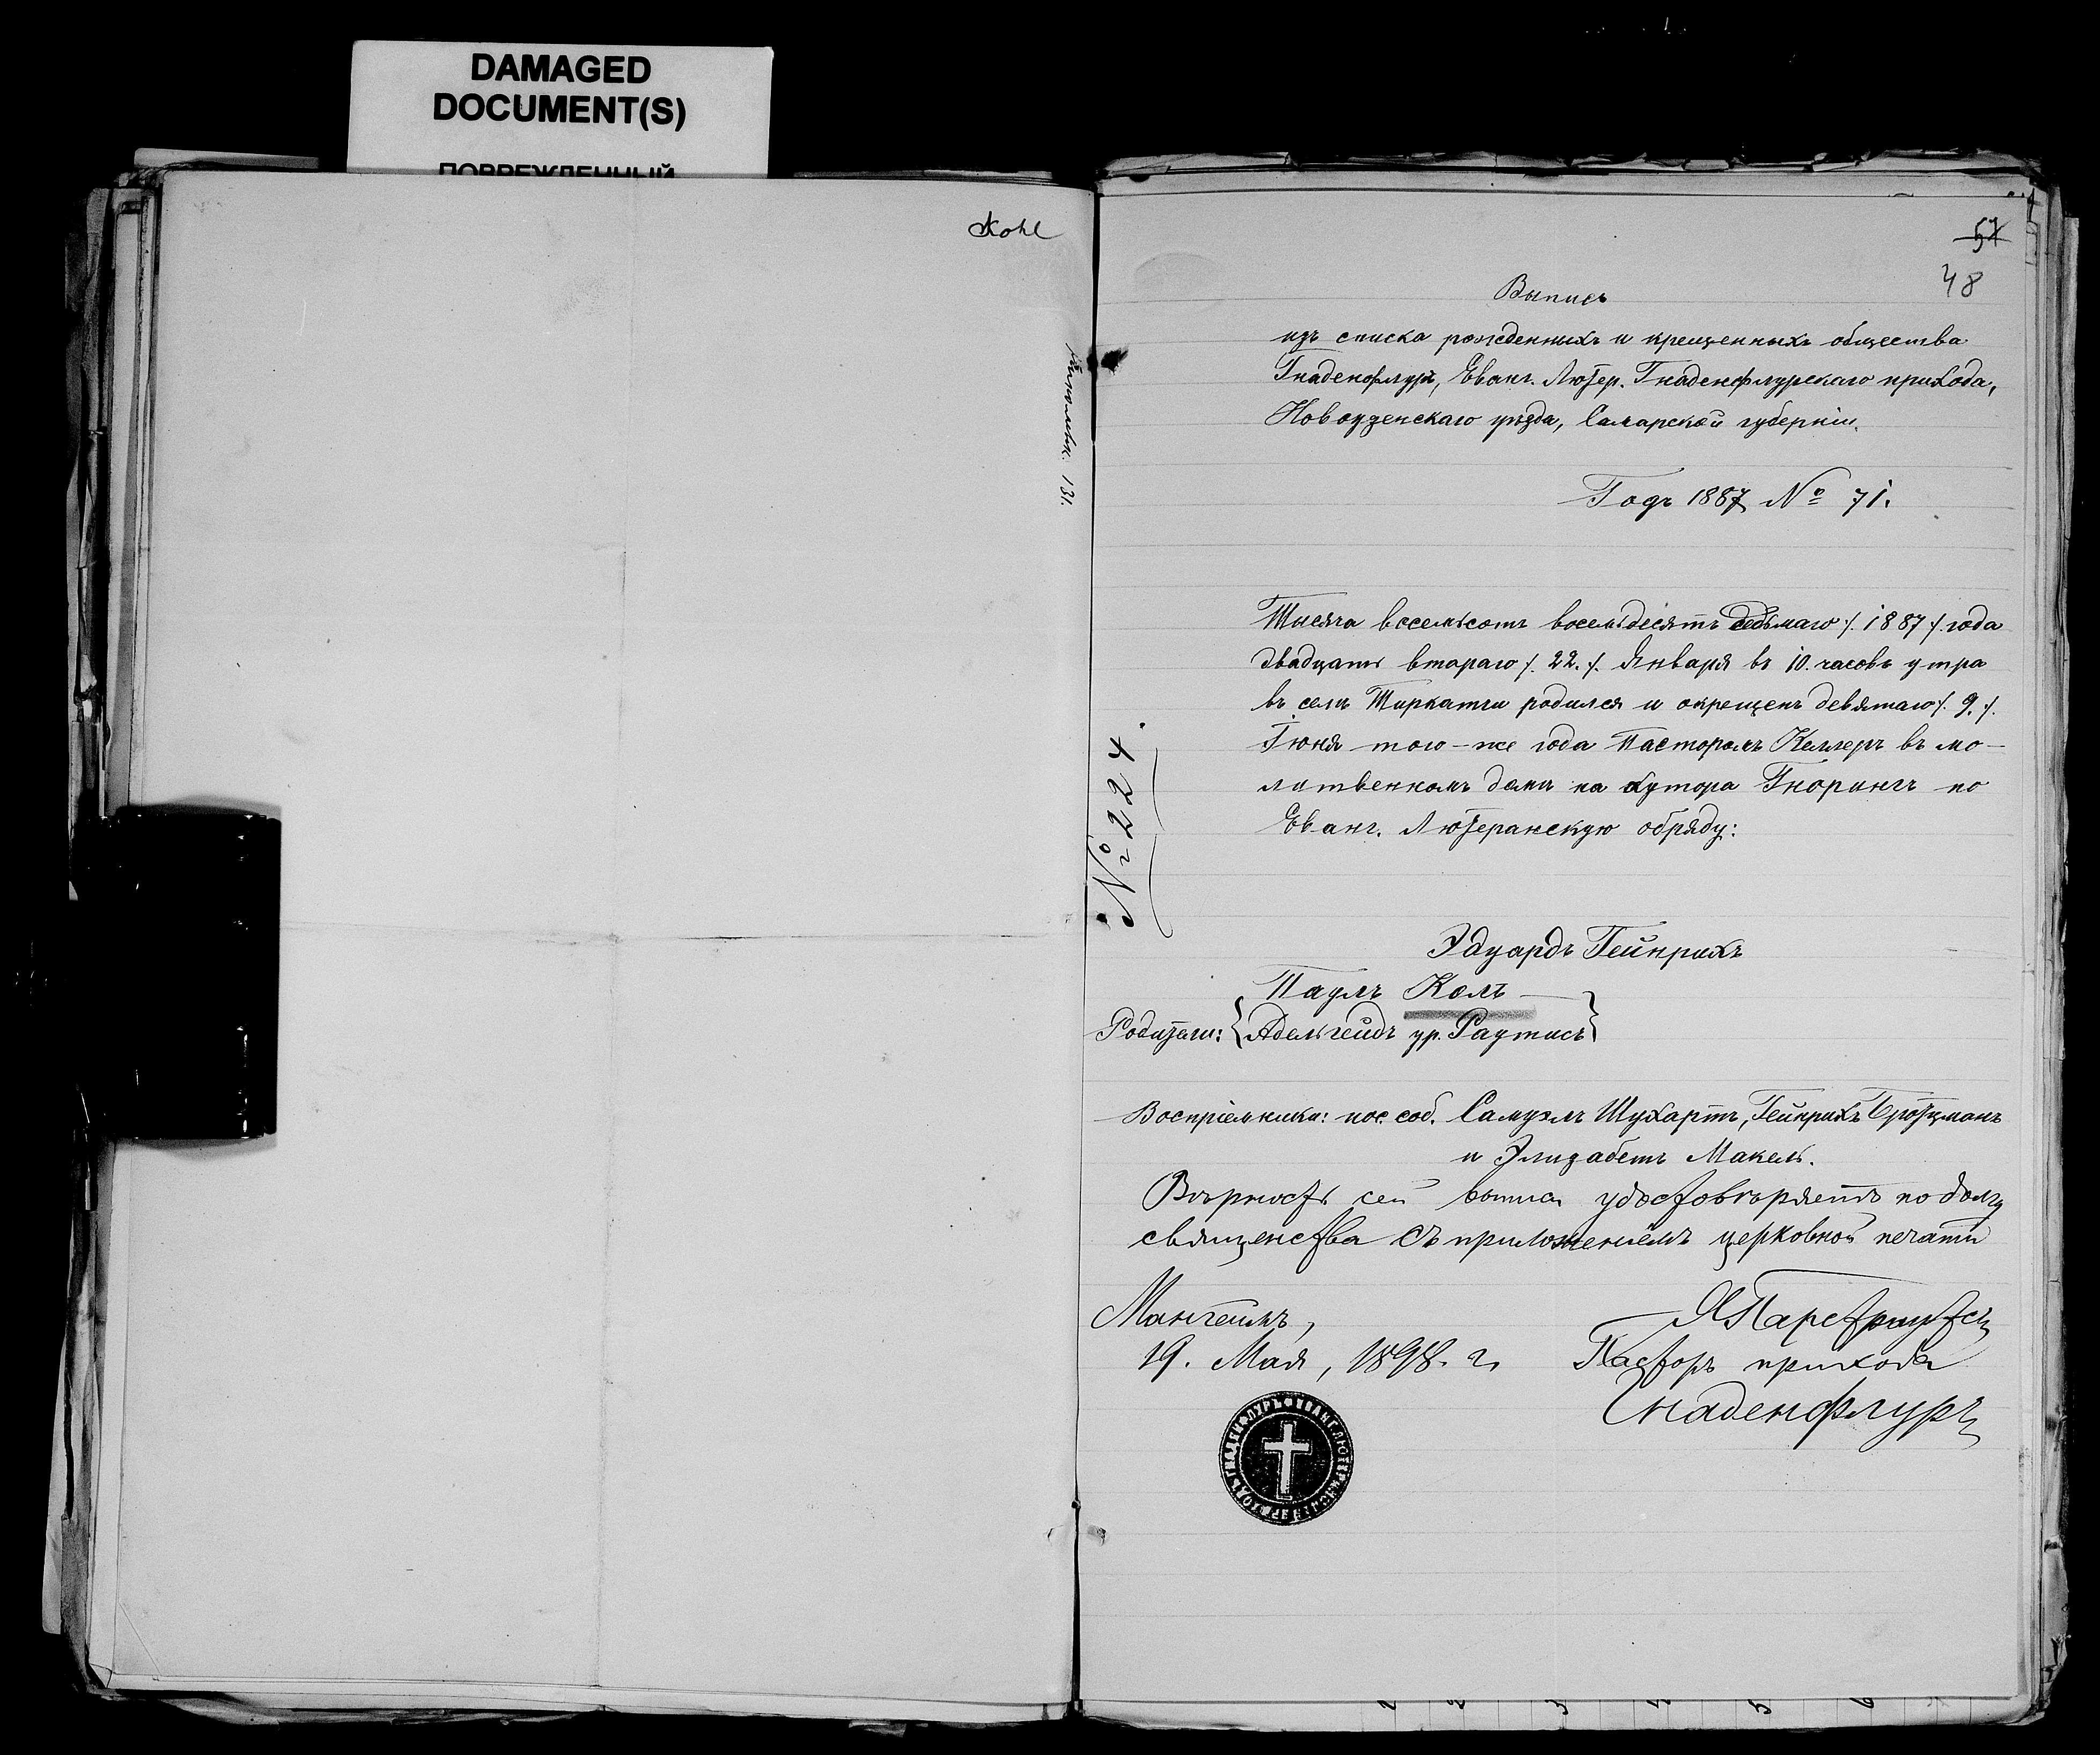 DAMAGED
DOCUMENT(S)
ПОВРЕЖДЕННЫЙ
Kohl
131.
57
48
Выпись
изъ списка рожденныхъ и крещенныхъ общества
Гнаденфлуръ, Еванг. Лютер. Гнаденфлурскаго прихода,
Новоузенскаго уѣзда, Самарской губерніи.
Годъ 1887 № 71.
№ 224.
Тысяча восемьсотъ восемьдесятъ седьмаго ⁒ 1887 ⁒ года
двадцать втараго ⁒ 22. ⁒ Января въ 10. часовъ утра
въ селѣ Тиркатли родился и окрещенъ девятаго ⁒ 9. ⁒
Іюня того-же года Пасторомъ Келлеръ въ мо-
литвенномъ домѣ на хутора Гнорингъ по
Еванг. Лютеранскую обряду:
Эдуардъ Гейнрихъ
Паулъ Коль
Родители: {Адельгейдъ ур. Раутисъ}
Воспріемники: пос. соб. Самуэлъ Шухартъ, Гейнрихъ Бротцманъ
и Элизабетъ Макель.
Вѣрность сей выписи удостовѣряетъ по долгу
священства съ приложеніемъ церковной печати
Мангеймъ,
19. Мая, 1898. г.
Пасторъ прихода
Гнаденфлуръ